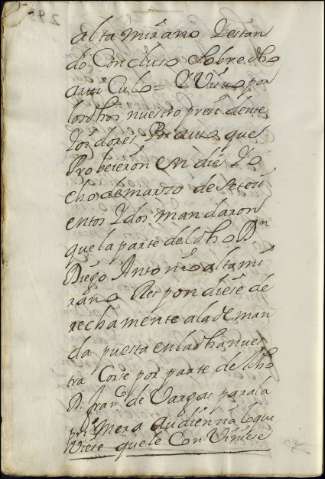 altamirano Y estan
do Concluso sobre dho
artticulo = Y Visto por
los dhos nuestro presidente
Y oidores Por auto que
Probeieron en diez Y o
cho de marzo de setesi
entos Y dos mandaron
que la parte del dho Dn
Diego Antonio altami
rano Respondiese de
rechamente a la deman
da puesta en la dha nues
tra Corte por parte del dho
D. franco de Vargas para la
primera audiencia lo que
Viese que le Conviniese